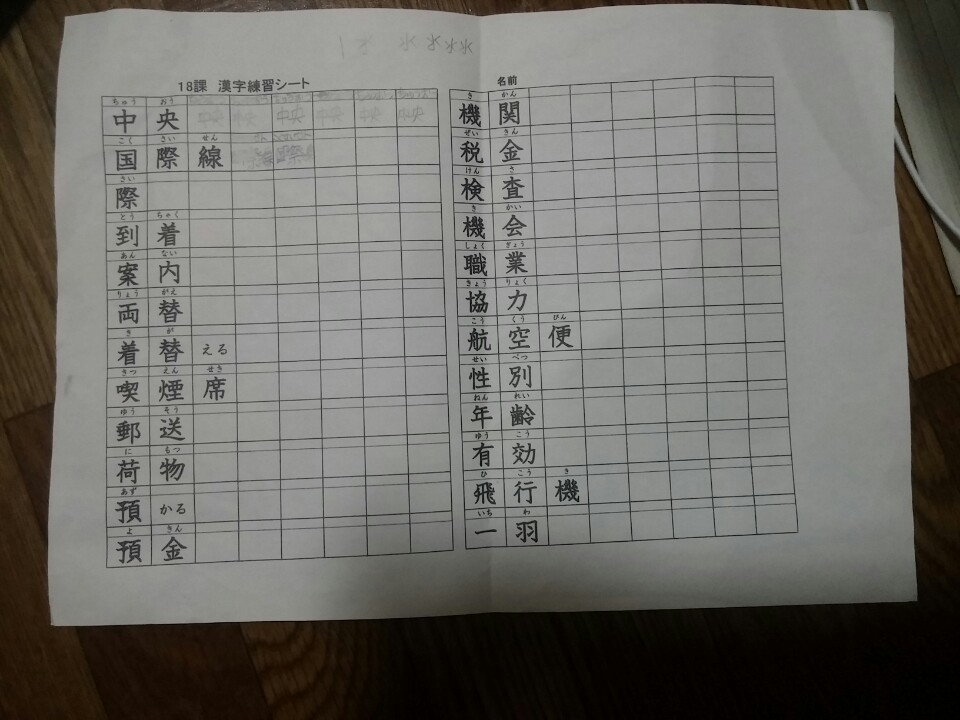 18課 漢字練習シート
ちゅう おう
中央 中央 中央 中央 中央 中央 中央
こく さい せん
国際線
さい
際
とう ちゃく
到着
あん ない
案内
りょう がえ
両替
き が
着替える
きつ えん せき
喫煙席
ゆう そう
郵送
に もつ
荷物
あず
預かる
よ きん
預金
名前
き かん
機関
ぜい きん
税金
けん さ
検査
き かい
機会
しょく ぎょう
職業
きょう りょく
協力
こう くう びん
航空便
せい べつ
性別
ねん れい
年齢
ゆう こう
有効
ひ こう き
飛行機
いち わ
一羽